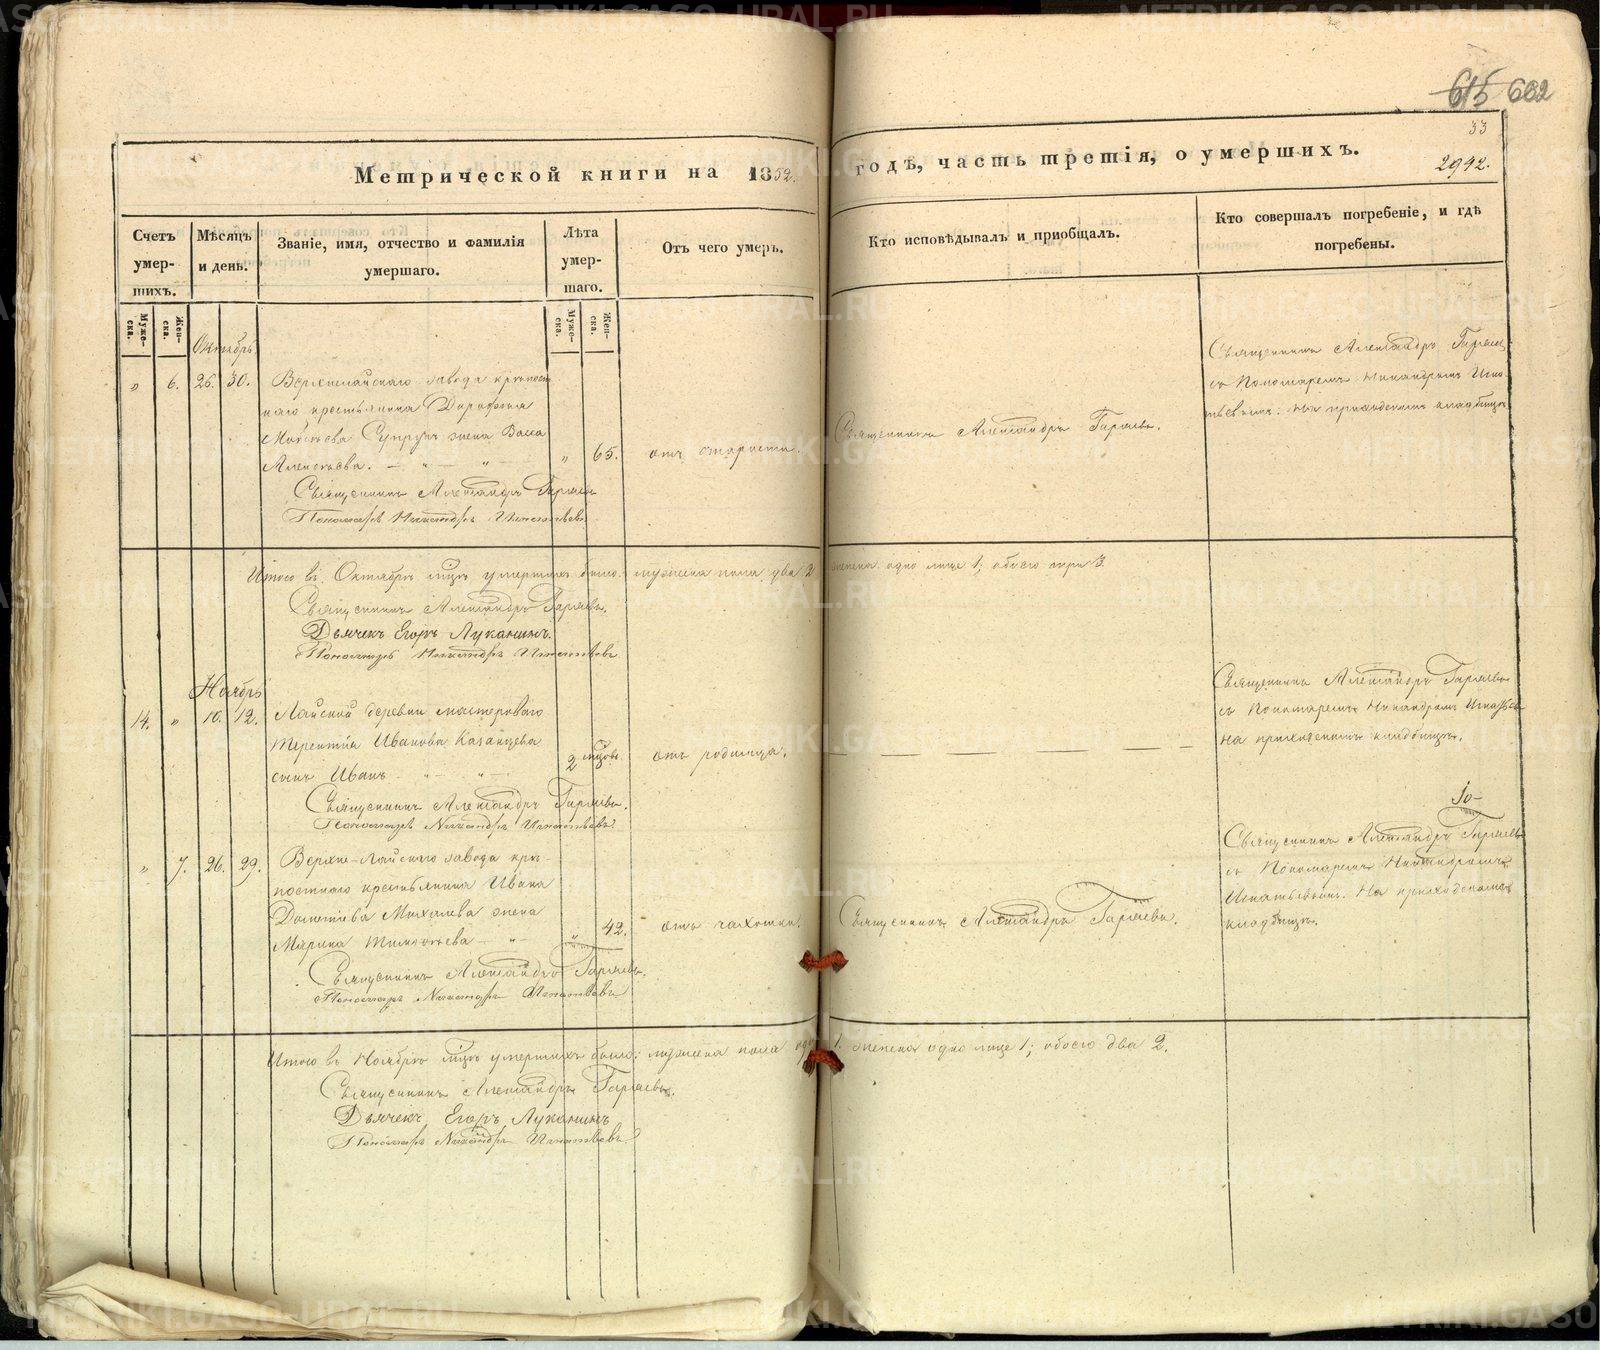 615 602
33
Метрической книги на 1852.
годъ, часть третія, о умершихъ.
2942.
Счетъ умер-
шихъ.
Мѣсяцъ
и день.
Званіе, имя, отчество и фамилія
умершаго.
Лѣта
умер-
шаго.
Отъ чего умеръ.
Кто исповѣдывалъ и приобщалъ.
Кто совершалъ погребеніе, и гдѣ
погребены.
Муже-
ска.
Жен-
ска.
Муже-
ска.
Жен-
ска.
Октябрь
„ 6. 26. 30.
Верхнелайскаго завода крѣпост
наго крестьянина
супруги жена Васса
Алексѣева. — „ — „ —
„ 65. отъ старости.
Священникъ Александръ Гаряевъ.
Священникъ Александръ Гаряевъ
съ Пономаремъ Никандромъ Игна
тьевымъ: на приходскомъ кладбищѣ
Священникъ Александръ Гаряевъ
Пономарь Никандръ Игнатьевъ
Итого въ Октябрѣ лицъ умершихъ было: мужеска пола два 2
женска одно лице 1; обоего три 3.
Священникъ Александръ Гаряевъ.
Дьячекъ Егоръ Луканинъ.
Пономарь Никандръ Игнатьевъ
Ноябрь
14. „ 10. 12.
Лайской деревни мастероваго
Терентія Иванова Казанцева
сынъ Иванъ — „ — „ —
2 мѣцовъ
отъ родимца.
Священникъ Александръ Гаряевъ
съ Пономаремъ Никандромъ Игнатьев
на приходскомъ кладбищѣ.
Священникъ Александръ Гаряевъ.
Пономарь Никандръ Игнатьевъ
„ 7. 26. 29.
Верхне-Лайскаго завода крѣ-
постнаго крестьянина Ивана
Михалева жена
Марина Тимофѣева — „ —
„ 42. отъ чахотки.
Священникъ Александръ Гаряевъ.
Священникъ Александръ Гаряевъ
съ Пономаремъ Никандромъ
Игнатьевымъ. На приходскомъ
кладбищѣ.
Священникъ Александръ Гаряевъ.
Пономарь Никандръ Игнатьевъ
Итого въ Ноябрѣ лицъ умершихъ было: мужеска пола одно
1. женска одно лице 1; обоего два 2.
Священникъ Александръ Гаряевъ.
Дьячекъ Егоръ Луканинъ
Пономарь Никандръ Игнатьевъ
METRIKI.GASO-URAL.RU